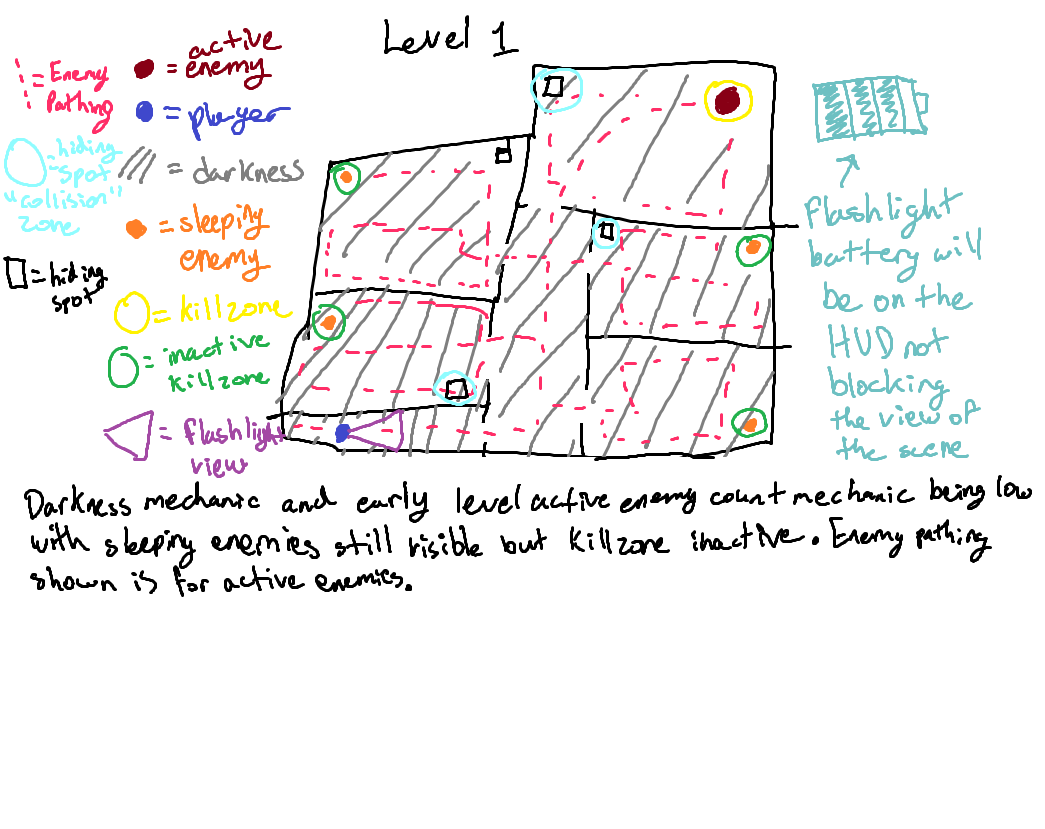 Level 1
= Enemy
Pathing
= active
enemy
= player
= hiding
spot
"collision"
zone
= darkness
= sleeping
enemy
= hiding
spot
= killzone
= inactive
killzone
= flashlight
view
flashlight
battery will
be on the
HUD not
blocking
the view of
the scene
Darkness mechanic and early level active enemy count mechanic being low
with sleeping enemies still visible but killzone inactive. Enemy pathing
shown is for active enemies.